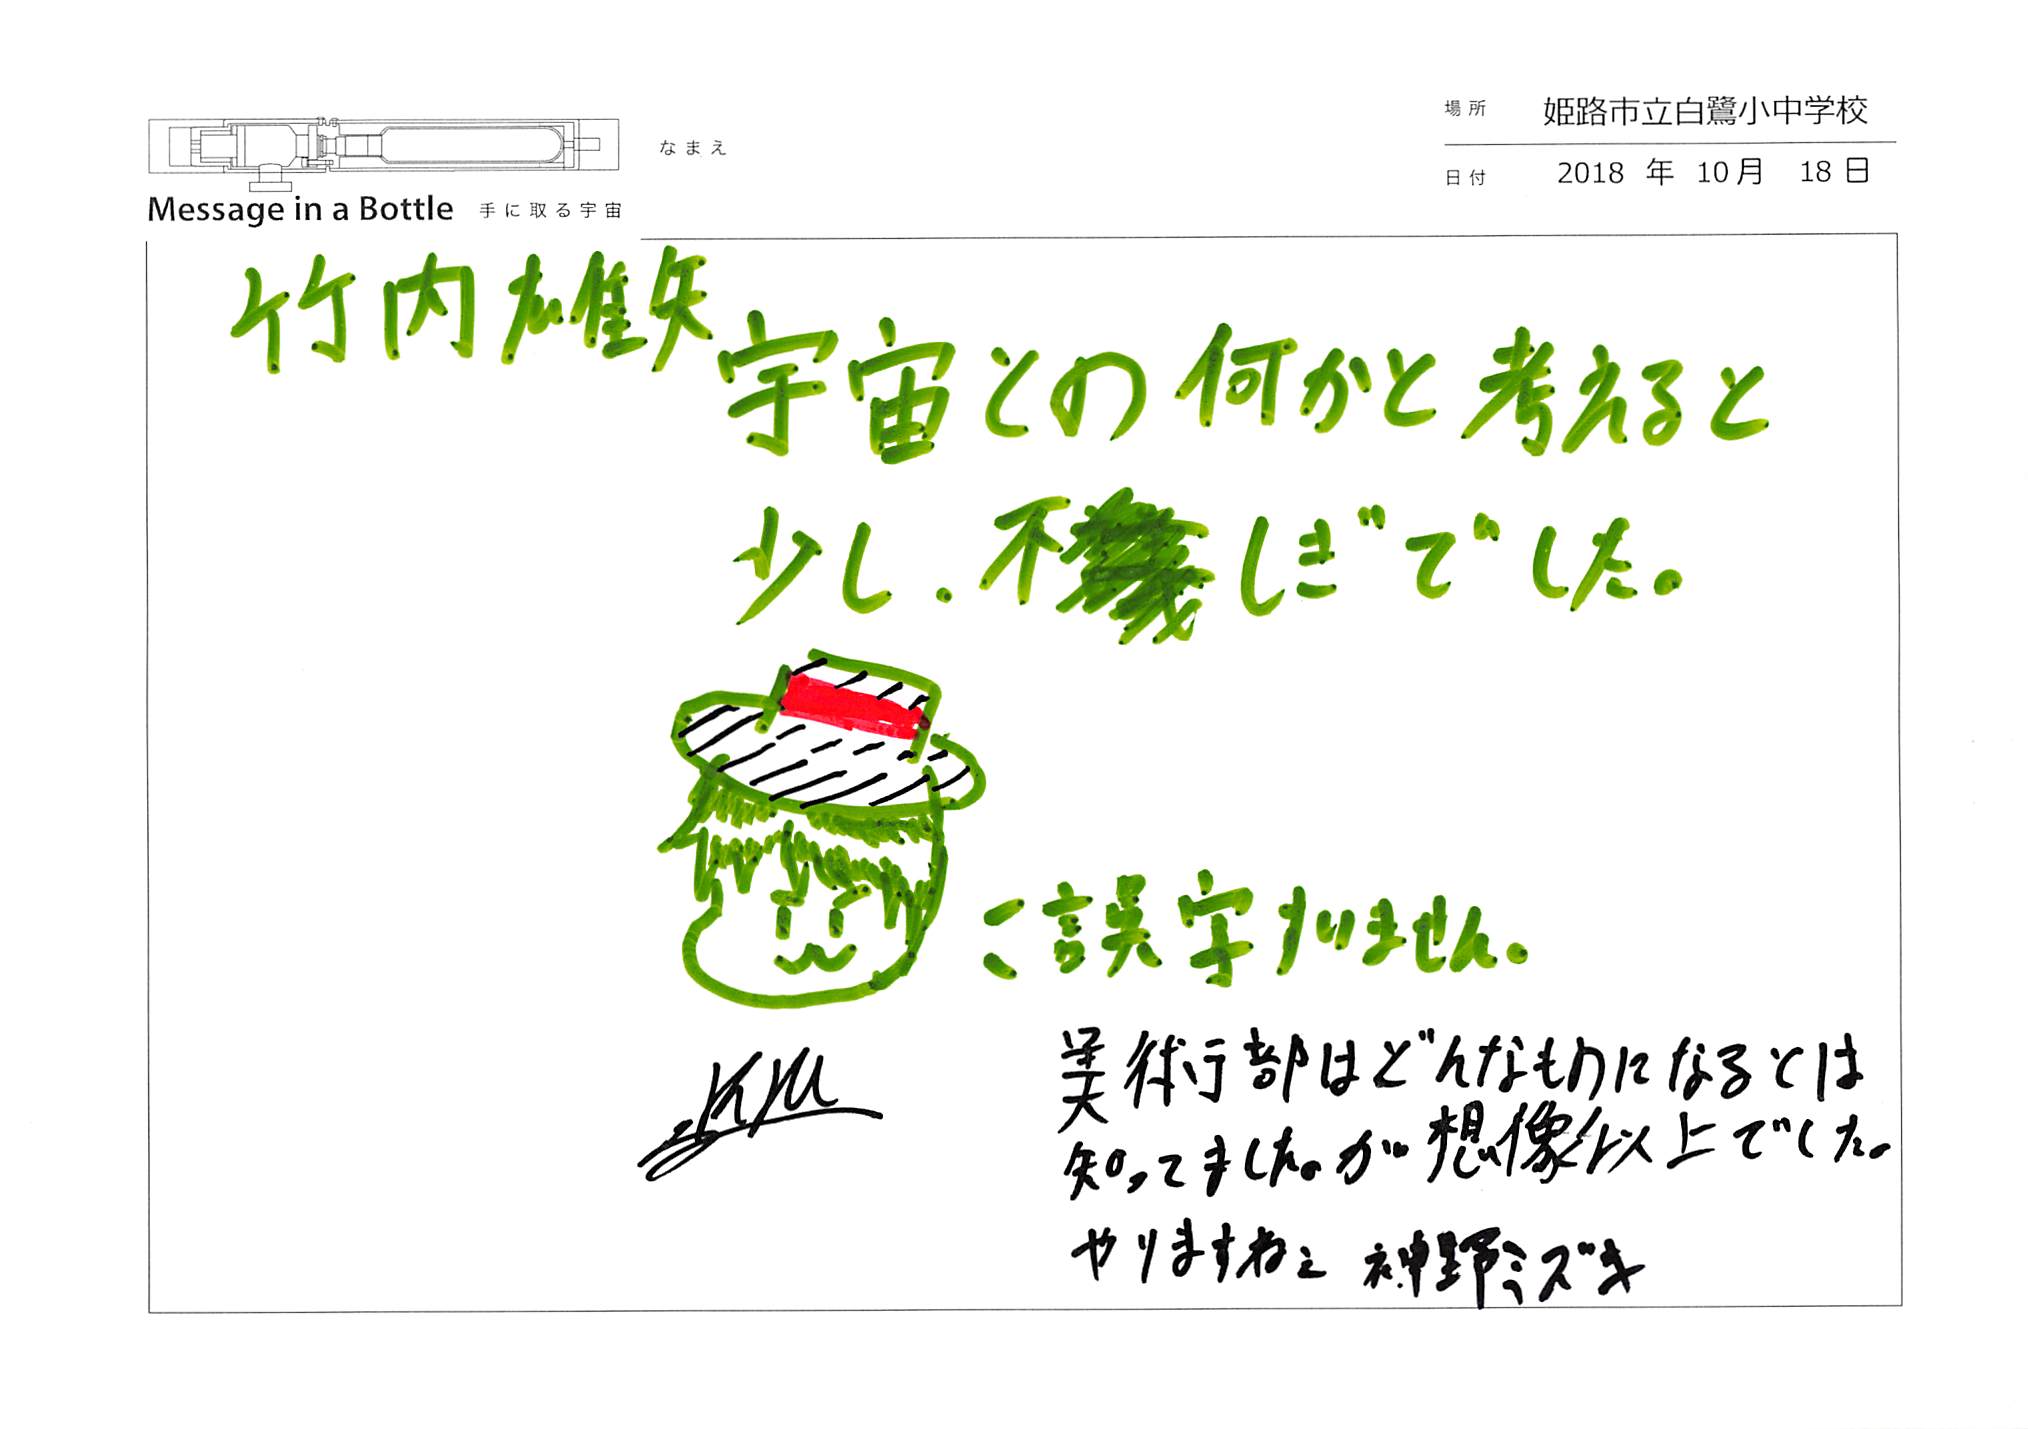 場所 姫路市立白鷺小中学校
なまえ
日付 2018 年 10月 18日
Message in a Bottle 手に取る宇宙
竹内雄矢
宇宙との何かと考えると
少し.不しぎでした。
ご誤字すいません。
美術部はどんなものになるとは
知ってました。が想像以上でした。
やりますねぇ 神野ミズキ